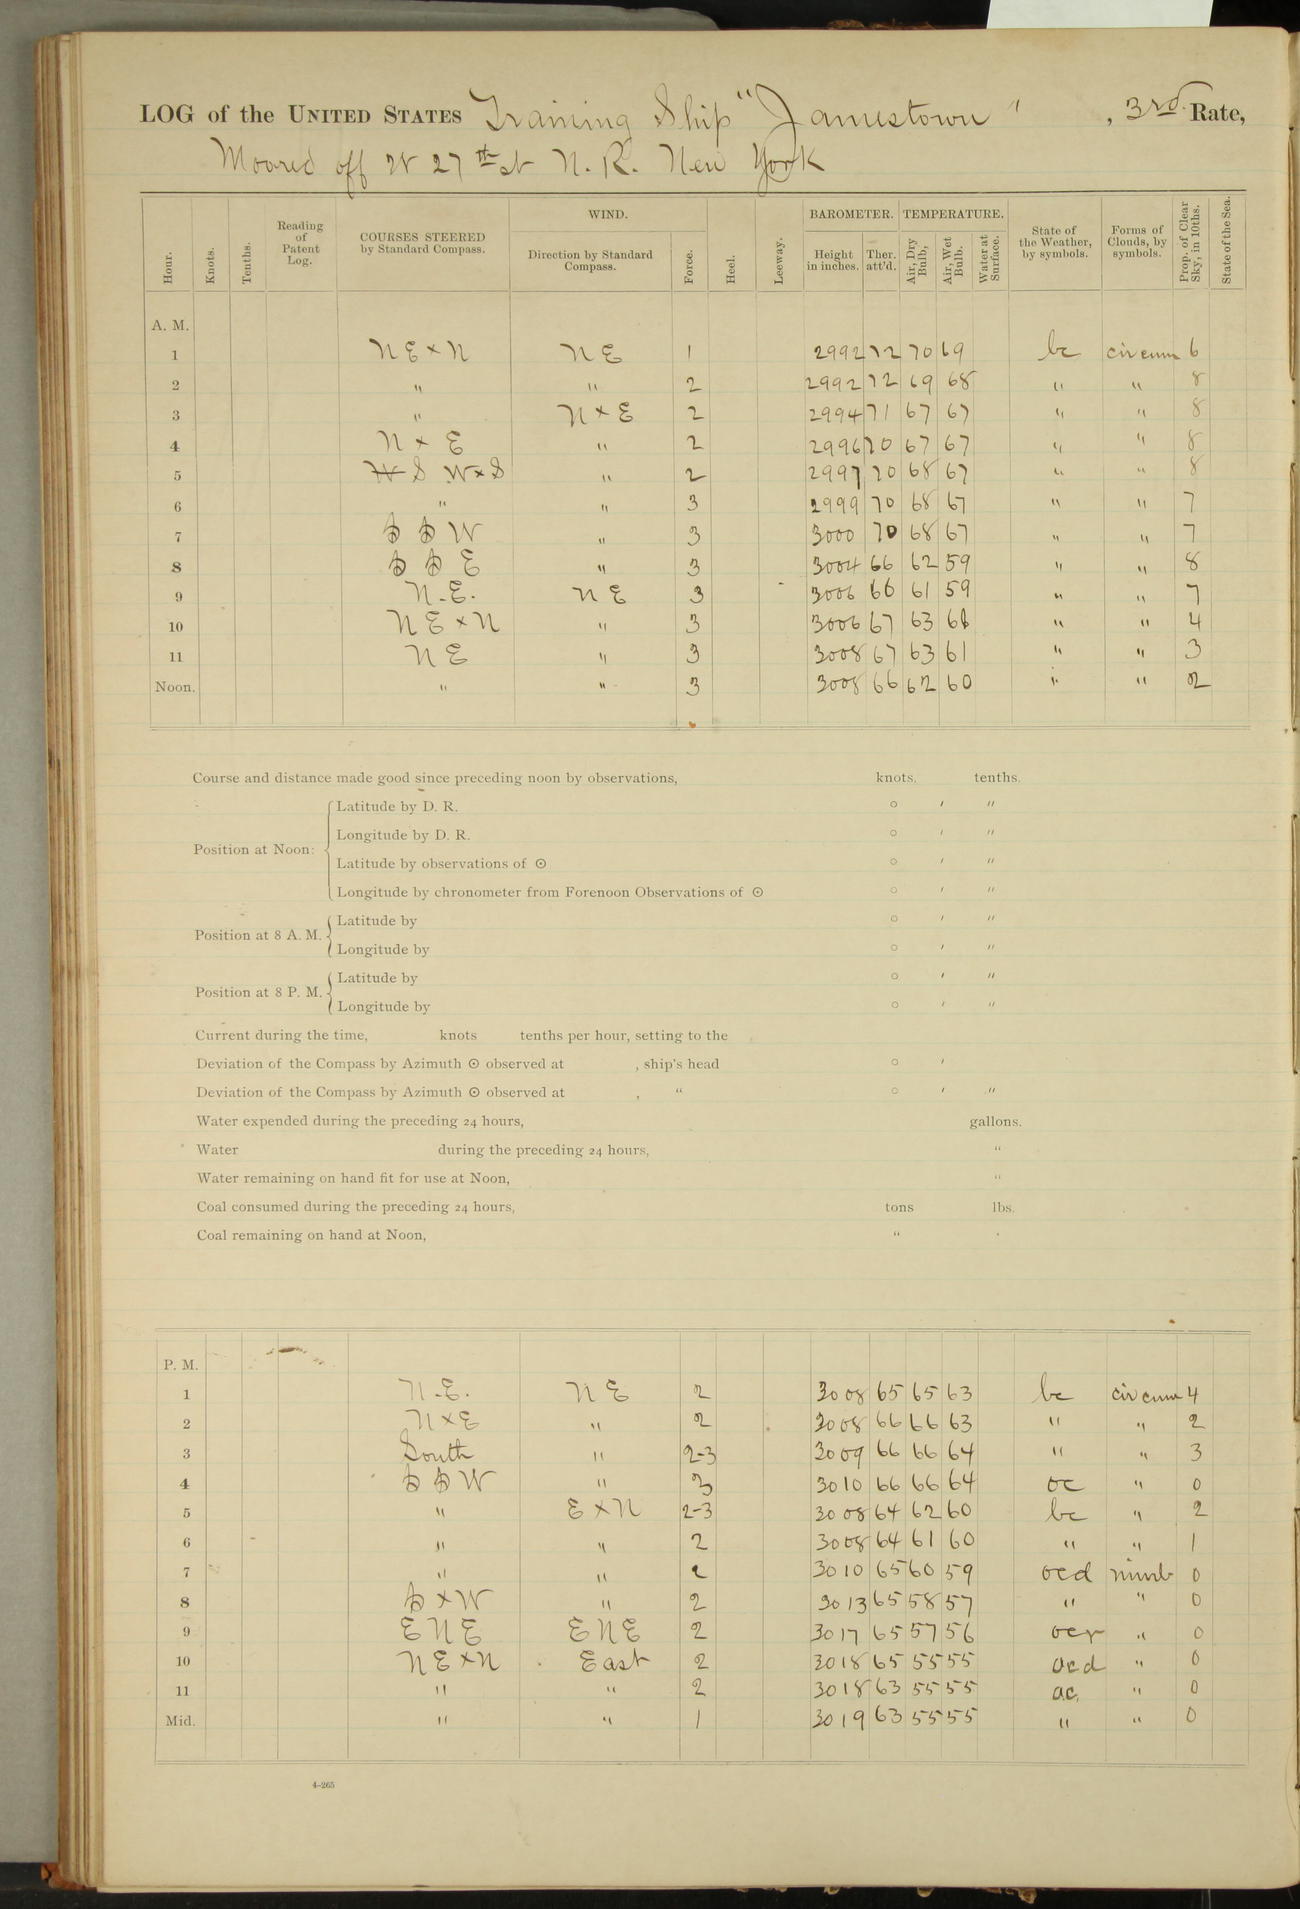 LOG of the UNITED STATES Training Ship "Jamestown" , 3rd. Rate,
Moored off W 27th st N. R. New York
Hour. Knots. Tenths. Reading of Patent Log. COURSES STEERED by Standard Compass. WIND. Direction by Standard Compass. Force. Heel. Leeway. BAROMETER. Height in inches. Ther. att'd. TEMPERATURE. Air, Dry Bulb. Air, Wet Bulb. Water at Surface. State of the Weather, by symbols. Forms of Clouds, by symbols. Prop. of Clear Sky, in 10ths. State of the Sea.
A. M.
1 NE x N NE 1 2992 72 70 69 bc cir cum 6
2 " " 2 2992 72 69 68 " " 8
3 " N x E 2 2994 71 67 67 " " 8
4 N x E " 2 2996 70 67 67 " " 8
5 W S W x S " 2 2997 70 68 67 " " 8
6 " " 3 2999 70 68 67 " " 7
7 S S W " 3 3000 70 68 67 " " 7
8 S S E " 3 3004 66 62 59 " " 8
9 N.E. NE 3 3006 66 61 59 " " 7
10 NE x N " 3 3006 67 63 " " 4
11 NE " 3 3008 67 63 61 " " 3
Noon. " " 3 3008 66 62 60 " " 2
Course and distance made good since preceding noon by observations, knots, tenths.
Position at Noon:
Latitude by D. R. ° ′ ″
Longitude by D. R. ° ′ ″
Latitude by observations of ⊙ ° ′ ″
Longitude by chronometer from Forenoon Observations of ⊙ ° ′ ″
Position at 8 A. M.
Latitude by ° ′ ″
Longitude by ° ′ ″
Position at 8 P. M.
Latitude by ° ′ ″
Longitude by ° ′ ″
Current during the time, knots tenths per hour, setting to the
Deviation of the Compass by Azimuth ⊙ observed at , ship's head ° ′
Deviation of the Compass by Azimuth ⊙ observed at , " ° ′ ″
Water expended during the preceding 24 hours, gallons.
Water during the preceding 24 hours, "
Water remaining on hand fit for use at Noon, "
Coal consumed during the preceding 24 hours, tons lbs.
Coal remaining on hand at Noon, "
P. M.
1 N.E. NE 2 3008 65 65 63 bc cir cum 4
2 N x E " 2 3008 66 66 63 " " 2
3 South " 2-3 3009 66 66 64 " " 3
4 S S W " 3 3010 66 66 64 oc " 0
5 " E x N 2-3 3008 64 62 60 bc " 2
6 " " 2 3008 64 61 60 " " 1
7 " " 2 3010 65 60 59 ocd nimb 0
8 S x W " 2 3013 65 58 57 " " 0
9 ENE ENE 2 3017 65 57 56 ocr " 0
10 NE x N East 2 3018 65 55 55 ocd " 0
11 " " 2 3018 63 55 55 oc, " 0
Mid. " " 1 3019 63 55 55 " " 0
4-265